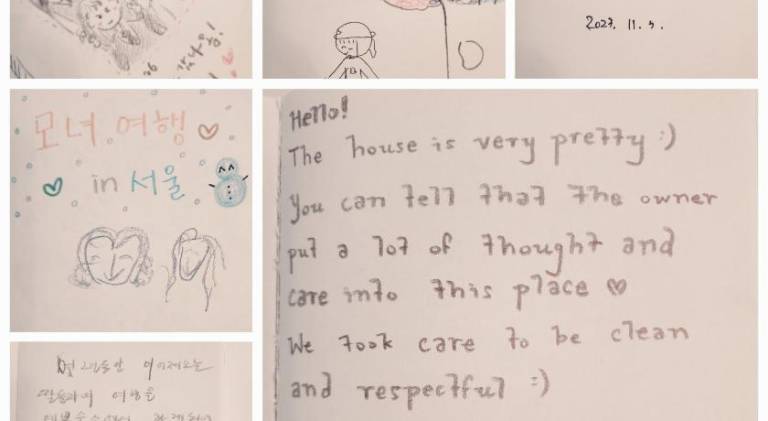 모녀 여행 ♡
♡ in 서울
Hello!
The house is very pretty :)
You can tell that the owner
put a lot of thought and
care into this place ♡
We took care to be clean
and respectful :)
여행을